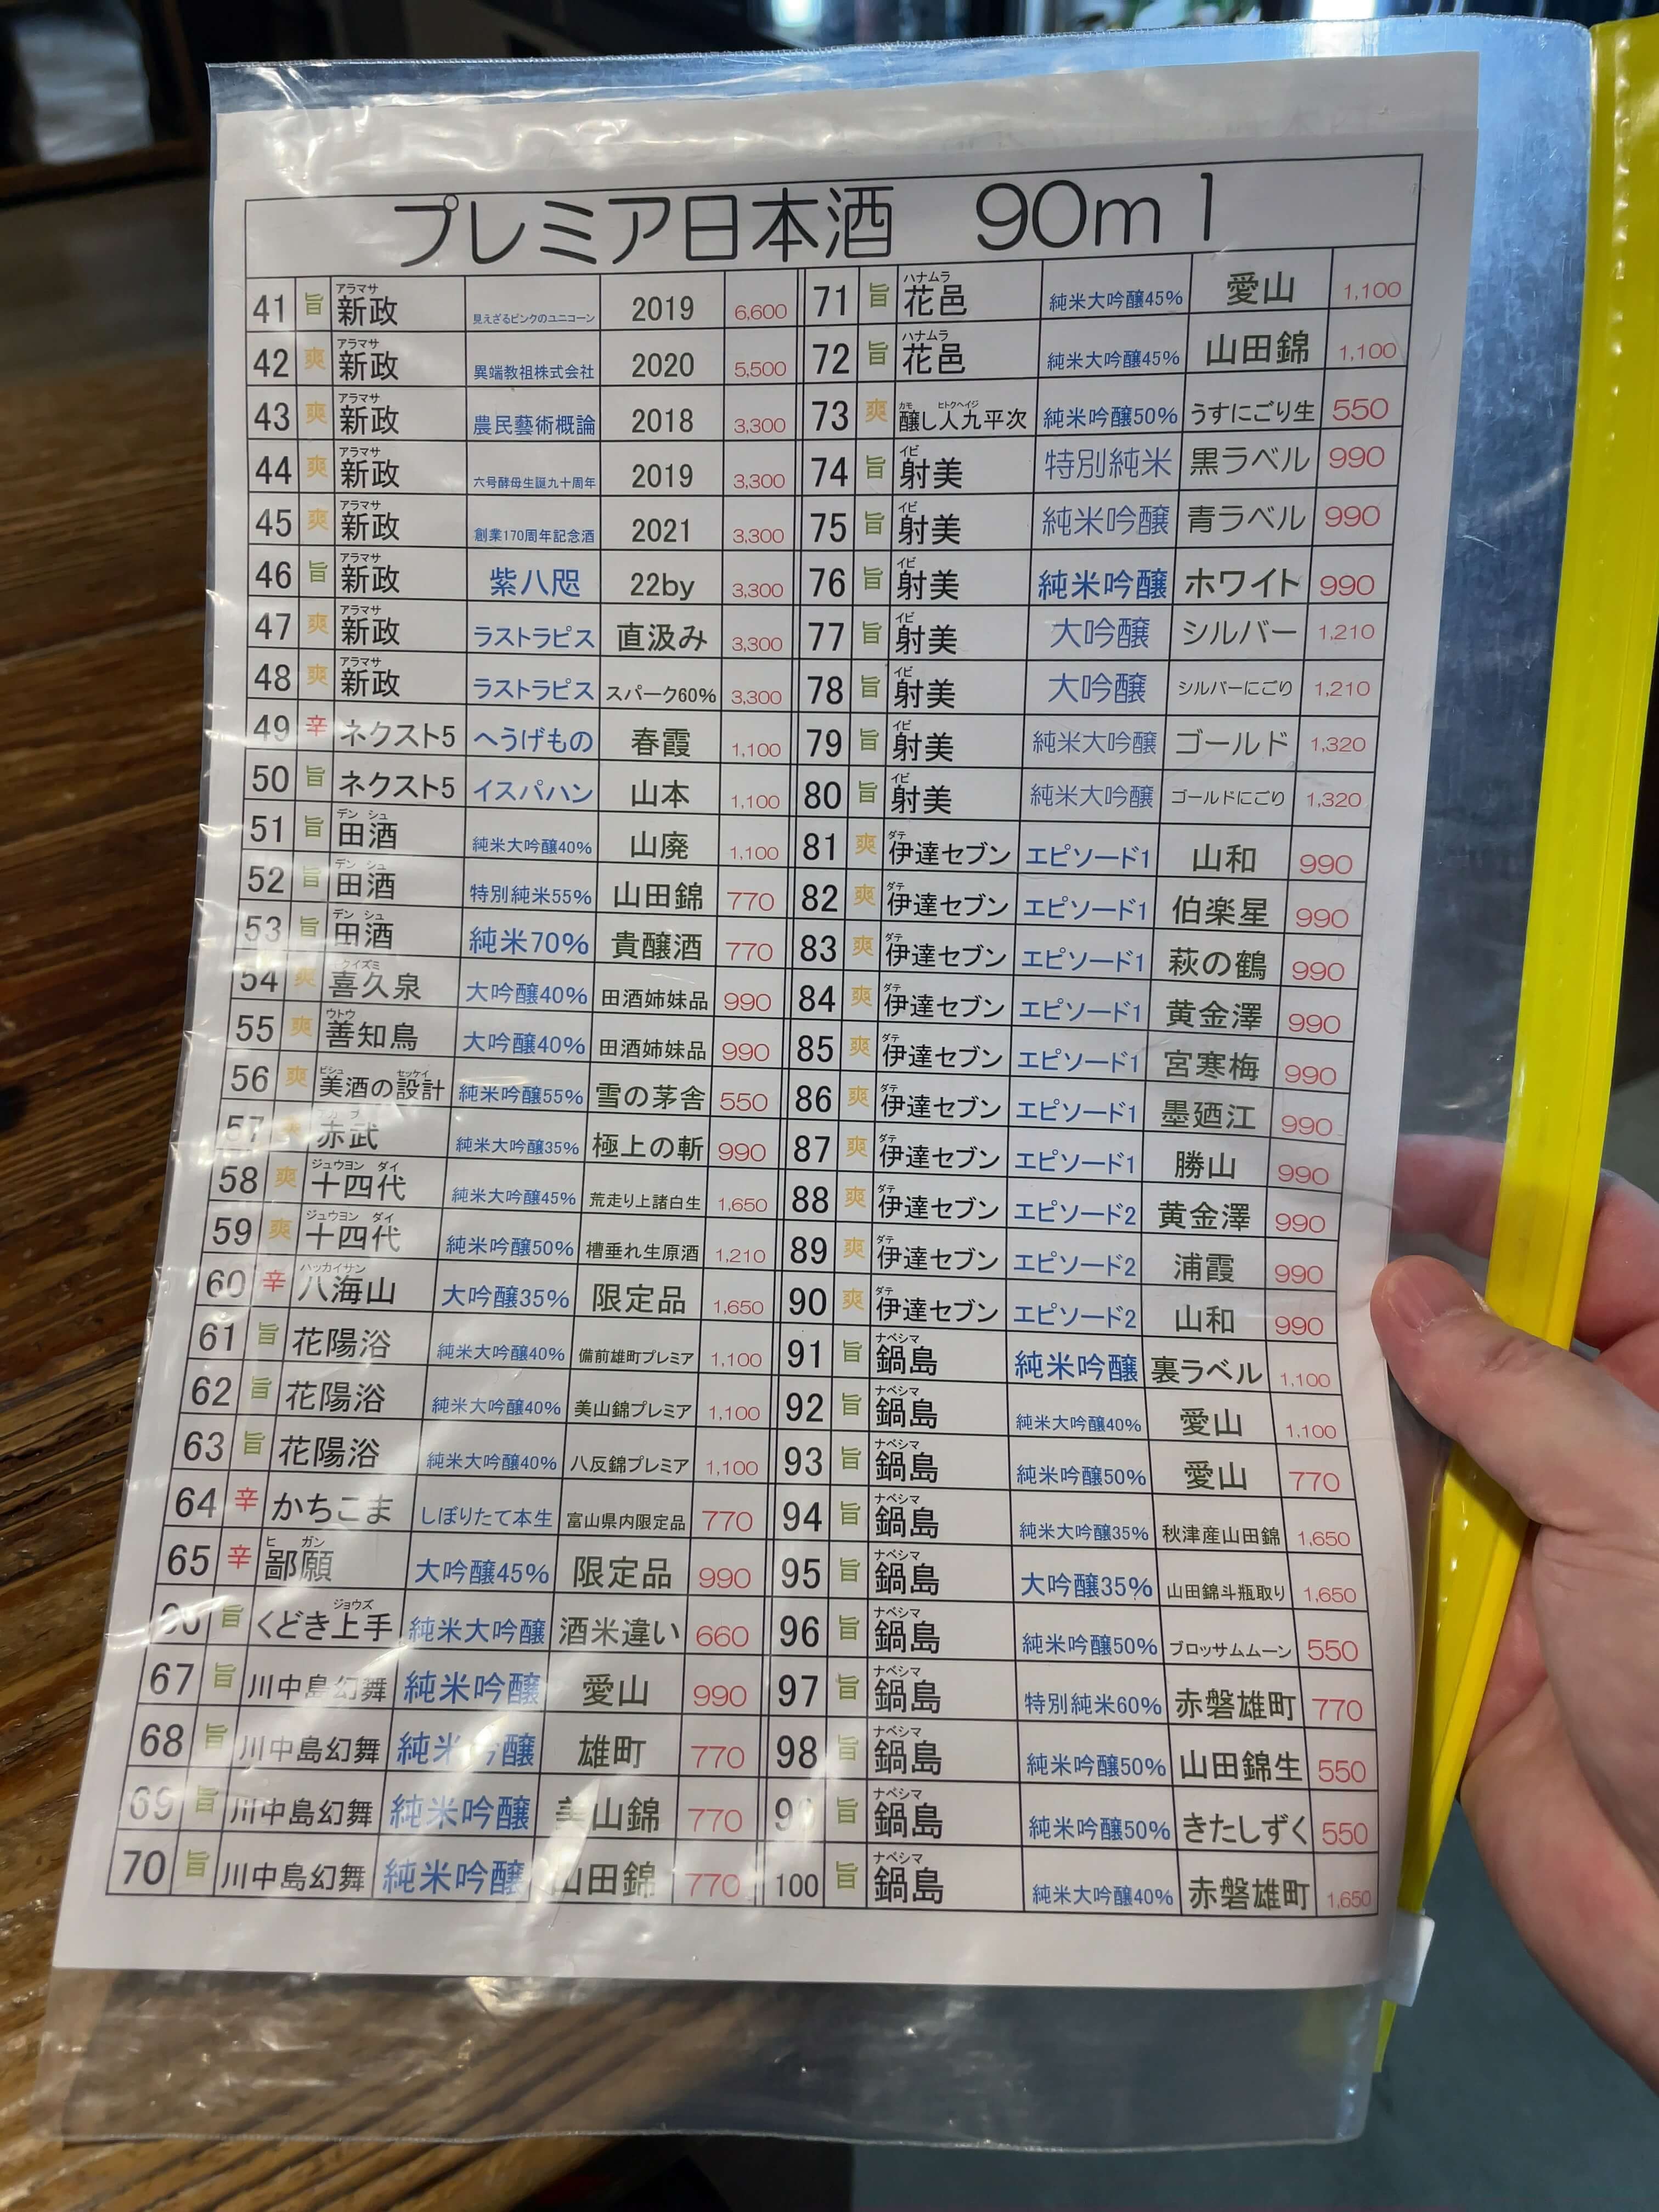 プレミア日本酒 90ml
41 旨 新政 アラマサ 見えざるピンクのユニコーン 2019 6,600
42 爽 新政 アラマサ 異端教祖株式会社 2020 5,500
43 爽 新政 アラマサ 農民藝術概論 2018 3,300
44 爽 新政 アラマサ 六号酵母生誕九十周年 2019 3,300
45 爽 新政 アラマサ 創業170周年記念酒 2021 3,300
46 旨 新政 アラマサ 紫八咫 22by 3,300
47 爽 新政 アラマサ ラストラピス 直汲み 3,300
48 爽 新政 アラマサ ラストラピス スパーク60% 3,300
49 辛 ネクスト5 へうげもの 春霞 1,100
50 旨 ネクスト5 イスパハン 山本 1,100
51 旨 田酒 デン シュ 純米大吟醸40% 山廃 1,100
52 旨 田酒 デン シュ 特別純米55% 山田錦 770
53 旨 田酒 デン シュ 純米70% 貴醸酒 770
54 爽 喜久泉 クイズミ 大吟醸40% 田酒姉妹品 990
55 爽 善知鳥 ウトウ 大吟醸40% 田酒姉妹品 990
56 爽 美酒の設計 ビシュ セッケイ 純米吟醸55% 雪の茅舎 550
57 赤武 カブ 純米大吟醸35% 極上の斬 990
58 爽 十四代 ジュウヨン ダイ 純米大吟醸45% 荒走り上諸白生 1,650
59 爽 十四代 ジュウヨン ダイ 純米吟醸50% 槽垂れ生原酒 1,210
60 辛 八海山 ハッカイサン 大吟醸35% 限定品 1,650
61 旨 花陽浴 純米大吟醸40% 備前雄町プレミア 1,100
62 旨 花陽浴 純米大吟醸40% 美山錦プレミア 1,100
63 旨 花陽浴 純米大吟醸40% 八反錦プレミア 1,100
64 辛 かちこま しぼりたて本生 富山県内限定品 770
65 辛 鄙願 ヒ ガン 大吟醸45% 限定品 990
66 旨 くどき上手 ジョウズ 純米大吟醸 酒米違い 660
67 旨 川中島幻舞 純米吟醸 愛山 990
68 旨 川中島幻舞 純米吟醸 雄町 770
69 旨 川中島幻舞 純米吟醸 美山錦 770
70 旨 川中島幻舞 純米吟醸 山田錦 770
71 旨 花邑 ハナムラ 純米大吟醸45% 愛山 1,100
72 旨 花邑 ハナムラ 純米大吟醸45% 山田錦 1,100
73 爽 醸し人九平次 カモ ヒトクヘイジ 純米吟醸50% うすにごり生 550
74 旨 射美 イビ 特別純米 黒ラベル 990
75 旨 射美 イビ 純米吟醸 青ラベル 990
76 旨 射美 イビ 純米吟醸 ホワイト 990
77 旨 射美 イビ 大吟醸 シルバー 1,210
78 旨 射美 イビ 大吟醸 シルバーにごり 1,210
79 旨 射美 イビ 純米大吟醸 ゴールド 1,320
80 旨 射美 イビ 純米大吟醸 ゴールドにごり 1,320
81 爽 伊達セブン ダテ エピソード1 山和 990
82 爽 伊達セブン ダテ エピソード1 伯楽星 990
83 爽 伊達セブン ダテ エピソード1 萩の鶴 990
84 爽 伊達セブン ダテ エピソード1 黄金澤 990
85 爽 伊達セブン ダテ エピソード1 宮寒梅 990
86 爽 伊達セブン ダテ エピソード1 墨廼江 990
87 爽 伊達セブン ダテ エピソード1 勝山 990
88 爽 伊達セブン ダテ エピソード2 黄金澤 990
89 爽 伊達セブン ダテ エピソード2 浦霞 990
90 爽 伊達セブン ダテ エピソード2 山和 990
91 旨 鍋島 ナベシマ 純米吟醸 裏ラベル 1,100
92 旨 鍋島 ナベシマ 純米大吟醸40% 愛山 1,100
93 旨 鍋島 ナベシマ 純米吟醸50% 愛山 770
94 旨 鍋島 ナベシマ 純米大吟醸35% 秋津産山田錦 1,650
95 旨 鍋島 ナベシマ 大吟醸35% 山田錦斗瓶取り 1,650
96 旨 鍋島 ナベシマ 純米吟醸50% ブロッサムムーン 550
97 旨 鍋島 ナベシマ 特別純米60% 赤磐雄町 770
98 旨 鍋島 ナベシマ 純米吟醸50% 山田錦生 550
99 旨 鍋島 ナベシマ 純米吟醸50% きたしずく 550
100 旨 鍋島 ナベシマ 純米大吟醸40% 赤磐雄町 1,650